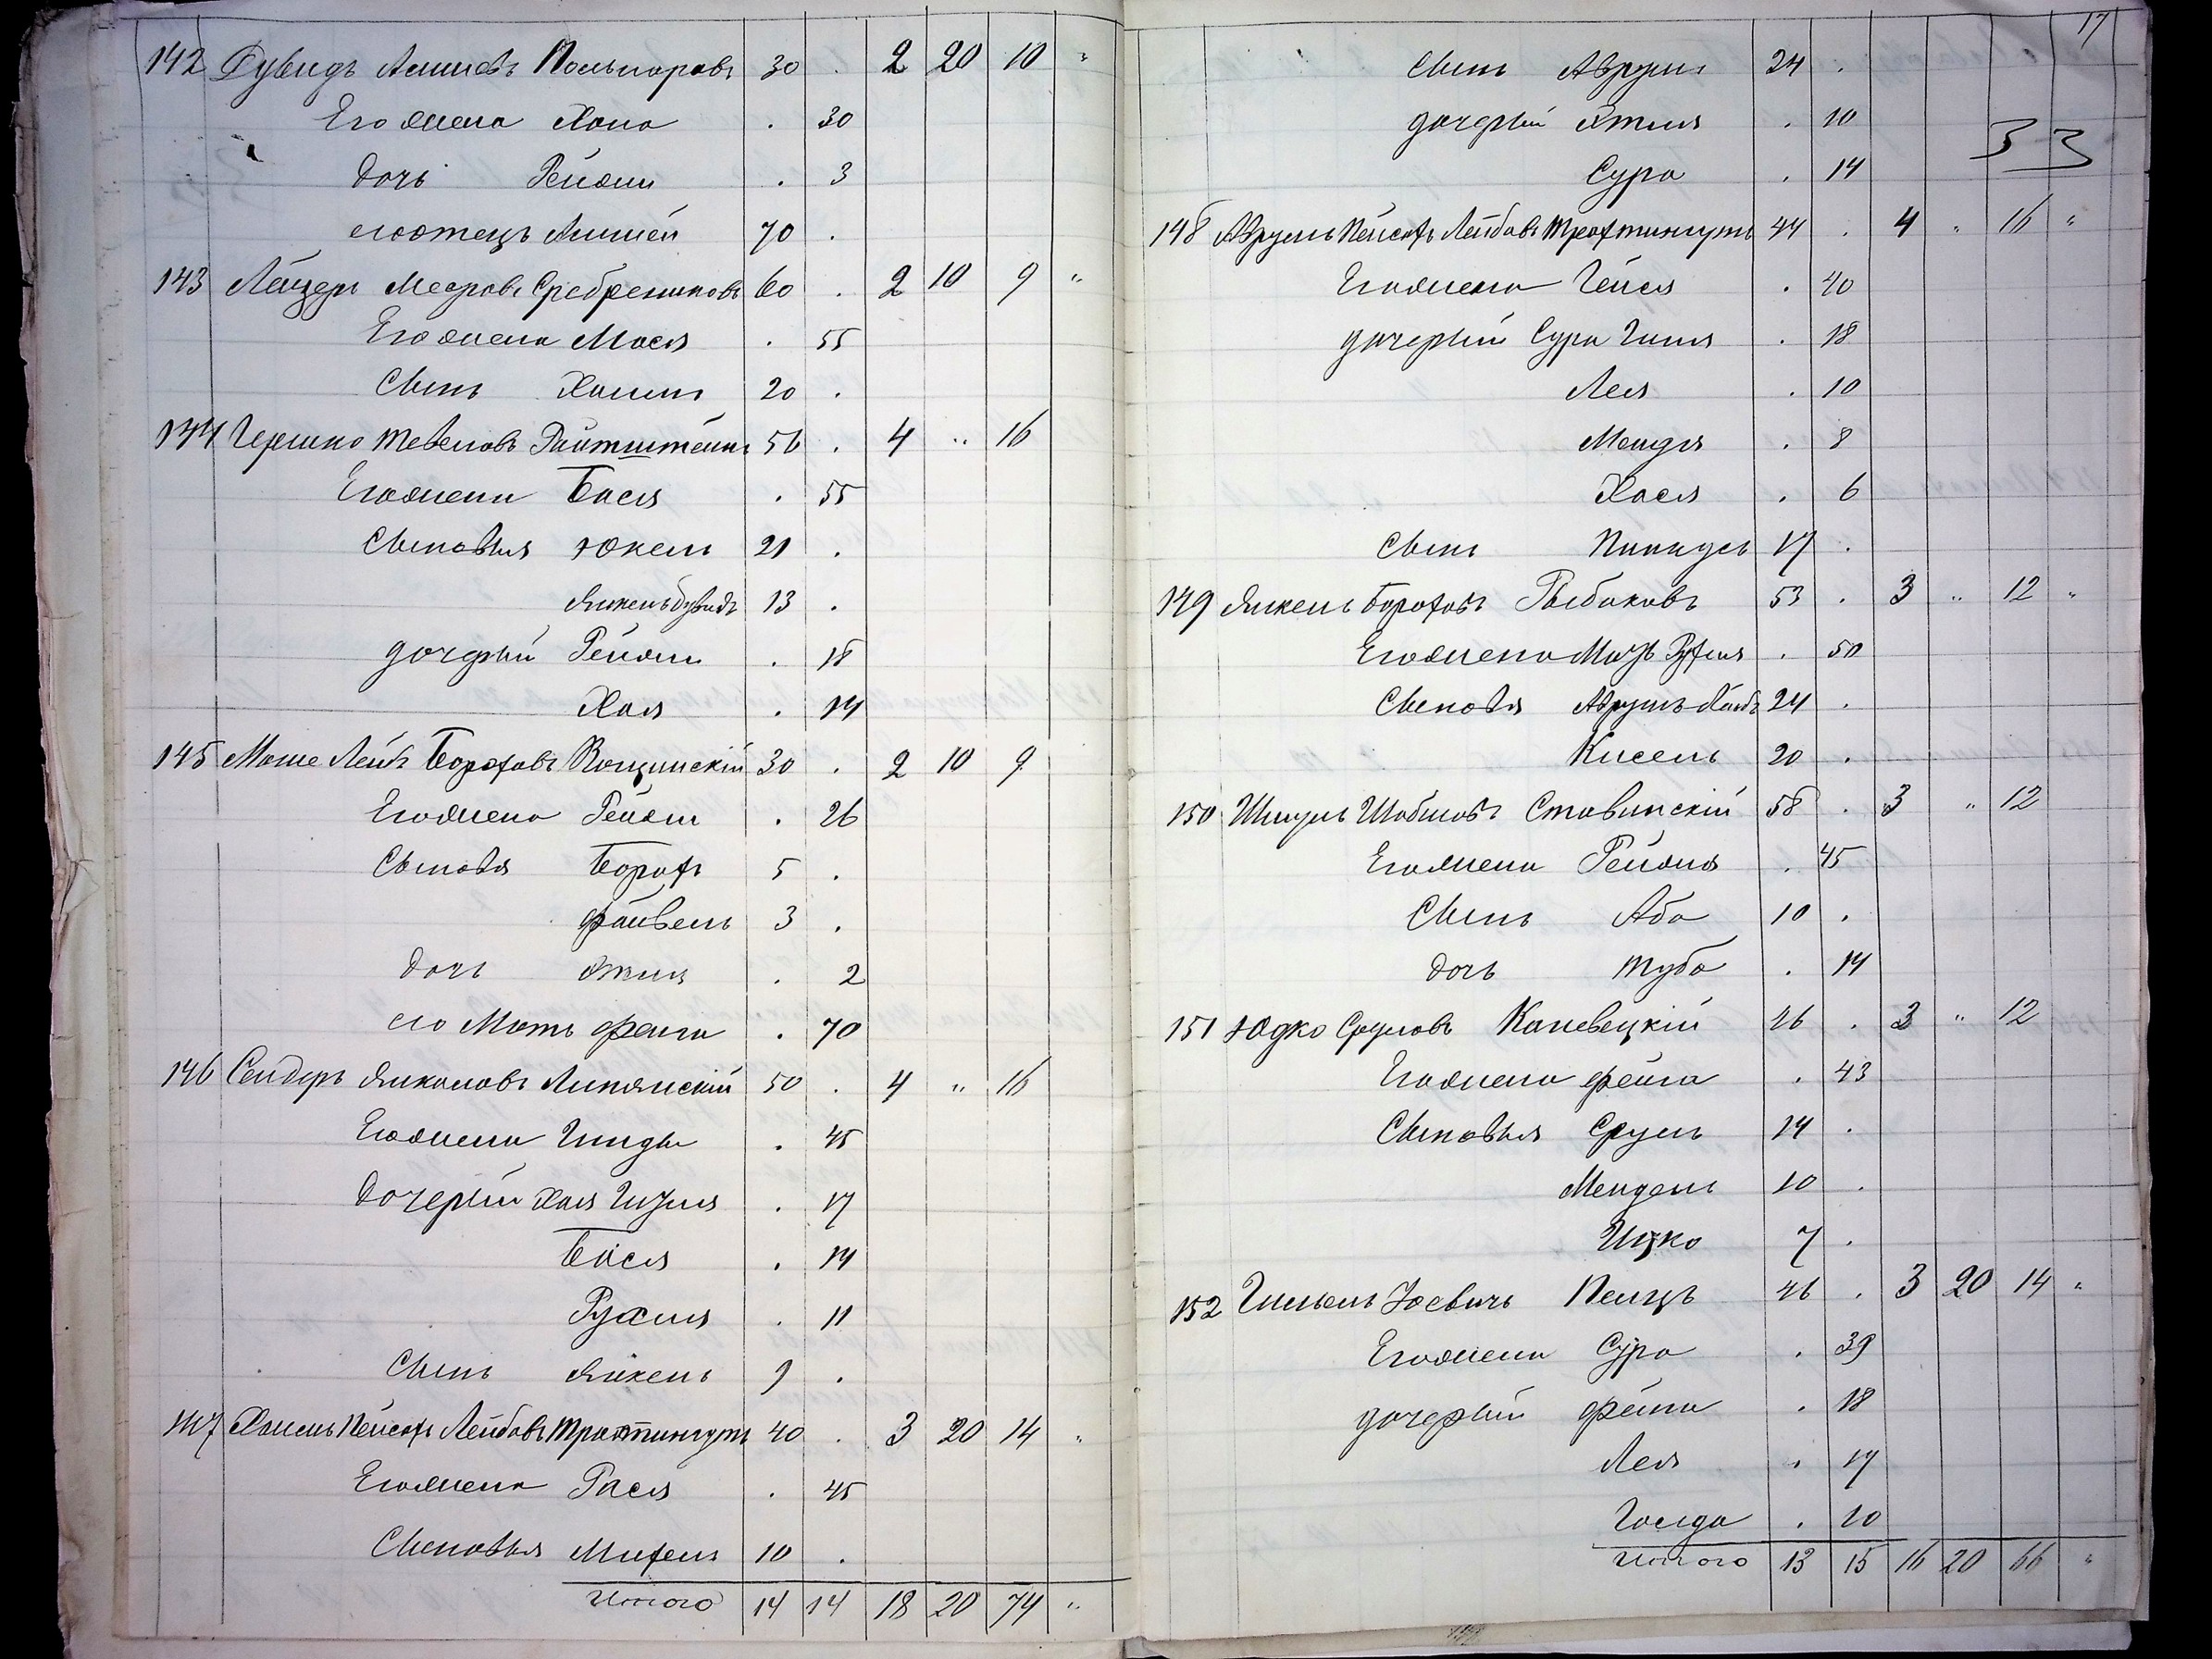 142 Дувидъ Аншіовъ 30 . 2 20 10 "
Его жена Хана . 30
дочь Рейзи . 3
его отецъ Аншей 70 .
143 Лейзеръ Мееровъ Сребрениковъ 60 . 2 10 9 "
Его жена Мася . 55
Сынъ Хаимъ 20 .
144 Гершко Тевелевъ Райтштейнъ 56 . 4 " 16
Его жена Бася . 55
Сыновья Юкель 21 .
Янкель Дувидъ 13 .
дочерьи Рейзи . 18
Хая . 14
145 Моше Лейбъ Бороховъ 30 . 2 10 9
Его жена Рейзи . 26
Сыновя Борохъ 5 .
Файвель 3 .
дочь Этля . 2
его Мать Фейга . 70
146 Сендеръ Янкелевъ Липянскій 50 . 4 " 16
Его жена Гинда . 45
дочерьи Хая . 17
Бася . 14
Рухля . 11
Сынъ Янкель 9 .
147 Хаимъ Пейсахъ Лейбовъ Трахтингутъ 40 . 3 20 14 "
Его жена Рася . 45
Сыновья Михель 10 .
Итого 14 14 18 20 74 "
17
Сынъ Аврумъ 24 .
дочерьи Этля . 10
33
Сура . 14
148 Аврумъ Пейсахъ Лейбовъ Трахтингутъ 44 . 4 " 16 "
Его жена Гейся . 40
дочерьи Сура Гитля . 18
Лея . 10
Мендя . 8
Хася . 6
Сынъ Пинхусъ 17 .
149 Янкель Бороховъ Рыбаковъ 53 . 3 " 12 "
Его жена Рухля . 50
Сыновя Аврумъ 24 .
Кисель 20 .
150 Шмуль Шабшовъ Ставинскій 58 . 3 " 12
Его жена Рейзя . 45
Сынъ Аба 10 .
дочь Туба . 14
151 Юдко Сруловъ Каневецкій 46 . 3 " 12
Его жена Фейга . 43
Сыновья Сруль 14 .
Мендель 10 .
Ицко 7 .
152 Гилель Іосевичъ Пенцъ 46 . 3 20 14 "
Его жена Сура . 39
дочерьи Фейга . 18
Лея . 17
Голда . 10
Итого 13 15 16 20 66 "